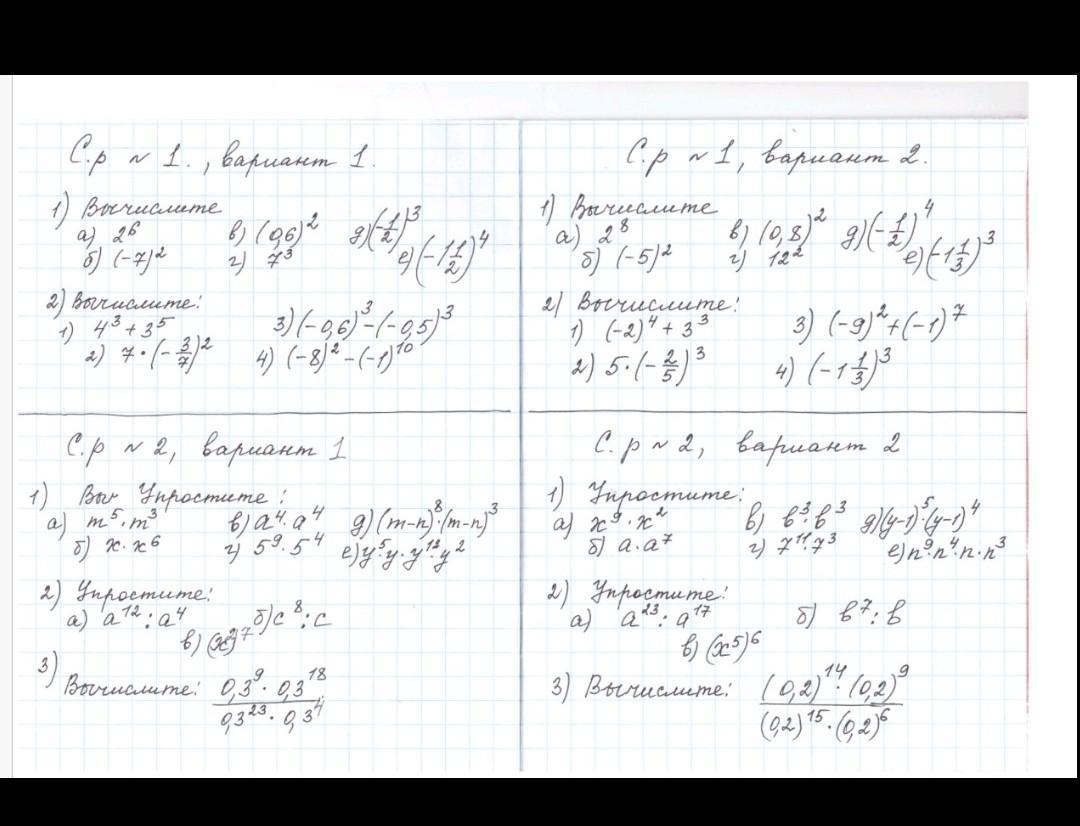 С.р № 1., вариант 1.
1) Вычислите
а) 2⁶ в) (0,6)² д) (-1/2)³
б) (-7)² г) 7³ е) (-1 1/2)⁴
2) Вычислите:
1) 4³ + 3⁵ 3) (-0,6)³ - (-0,5)³
2) 7 · (-3/7)² 4) (-8)² - (-1)¹⁰
С.р № 1, вариант 2.
1) Вычислите
а) 2⁸ в) (0,8)² д) (-1/2)⁴
б) (-5)² г) 12² е) (-1 1/3)³
2) Вычислите:
1) (-2)⁴ + 3³ 3) (-9)² + (-1)⁷
2) 5 · (-2/5)³ 4) (-1 1/3)³
С.р № 2, вариант 1
1) Выч Упростите:
а) m⁵ · m³ в) a⁴ · a⁴ д) (m-n)⁸ · (m-n)³
б) x · x⁶ г) 5⁹ · 5⁴ е) y⁵ · y · y¹² · y²
2) Упростите:
а) a¹² : a⁴ б) c⁸ : c
в) (x)⁷
3)
Вычислите: 0,3⁹ · 0,3¹⁸
0,3²³ · 0,3⁴
С.р № 2, вариант 2
1) Упростите:
а) x⁹ · x² в) b³ · b³ д) (y-1)⁵ · (y-1)⁴
б) a · a⁷ г) 7¹¹ · 7³ е) n⁹ · n⁴ · n · n³
2) Упростите:
а) a²³ : a¹⁷ б) b⁷ : b
в) (x⁵)⁶
3) Вычислите: (0,2)¹⁴ · (0,2)⁹
(0,2)¹⁵ · (0,2)⁶